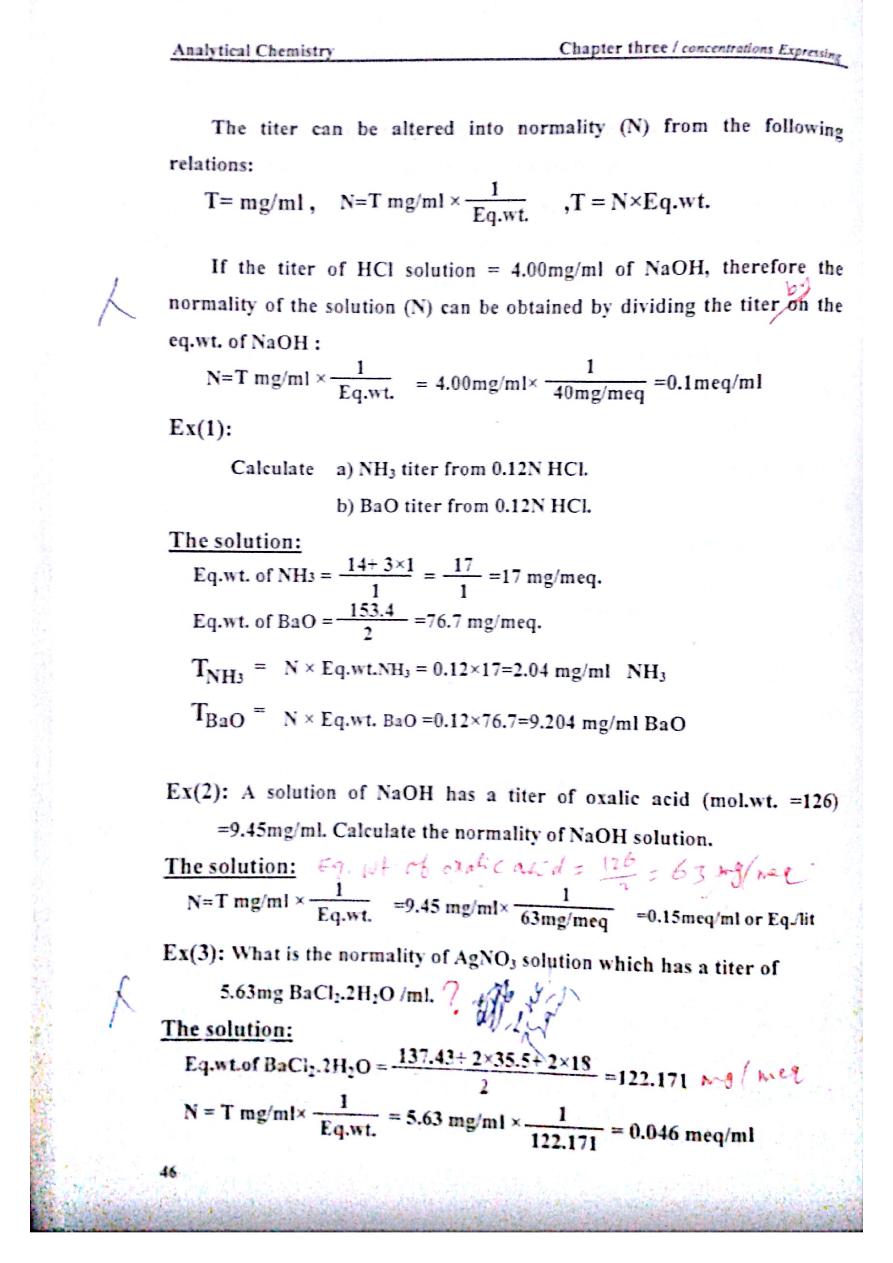 Analytical Chemistry Chapter three / concentrations Expressing
The titer can be altered into normality (N) from the following
relations:
T= mg/ml , N=T mg/ml × 1/Eq.wt. ,T = N×Eq.wt.
If the titer of HCl solution = 4.00mg/ml of NaOH, therefore the
by
normality of the solution (N) can be obtained by dividing the titer on the
eq.wt. of NaOH :
N=T mg/ml × 1/Eq.wt. = 4.00mg/ml× 1/40mg/meq =0.1meq/ml
Ex(1):
Calculate a) NH₃ titer from 0.12N HCl.
b) BaO titer from 0.12N HCl.
The solution:
Eq.wt. of NH₃ = 14+ 3×1/1 = 17/1 =17 mg/meq.
Eq.wt. of BaO = 153.4/2 =76.7 mg/meq.
T NH₃ = N × Eq.wt.NH₃ = 0.12×17=2.04 mg/ml NH₃
T BaO = N × Eq.wt. BaO =0.12×76.7=9.204 mg/ml BaO
Ex(2): A solution of NaOH has a titer of oxalic acid (mol.wt. =126)
=9.45mg/ml. Calculate the normality of NaOH solution.
The solution: Eq. wt of oxalic acid = 126/2 = 63 mg/meq
N=T mg/ml × 1/Eq.wt. =9.45 mg/ml× 1/63mg/meq =0.15meq/ml or Eq./lit
Ex(3): What is the normality of AgNO₃ solution which has a titer of
5.63mg BaCl₂.2H₂O /ml. ?
The solution:
Eq.wt.of BaCl₂.2H₂O = 137.43+ 2×35.5+ 2×18/2 =122.171 mg/meq
N = T mg/ml× 1/Eq.wt. = 5.63 mg/ml × 1/122.171 = 0.046 meq/ml
46